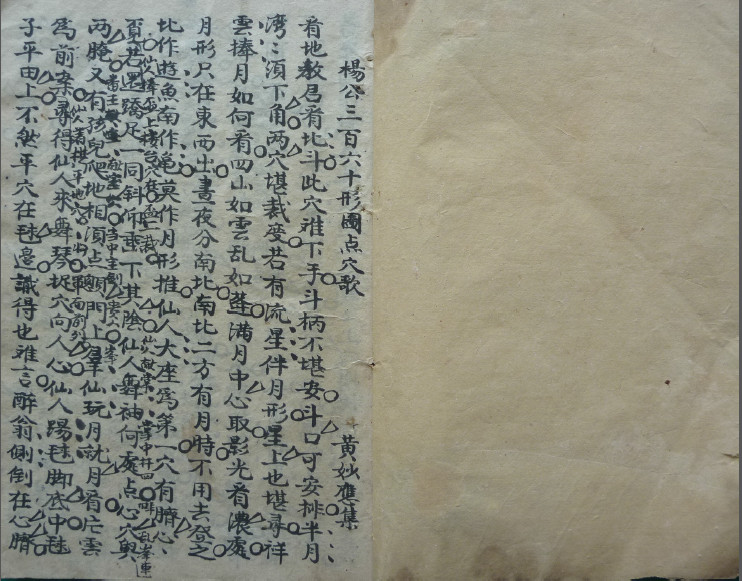 楊公三百六十形圖点穴歌 黄妙應集
看地教君看北斗此穴难下手斗柄不堪安斗口可安排半月
湾湾須下角两穴堪裁度若有流星伴月形星上也堪尋祥
雲捧月如何看四山如雲乱如蓬满月中心取影光看濃處
月形只在東西出晝夜分南北南北二方有月時不用去登之
比作遊魚南作龟莫作月形推仙人大座為第一穴有臍心
更若翘足一同斜仰垂下其陰仙人舞袖何處点心穴與
两腌又有孩兒爬地相須点顖門上羣仙玩月就月看片雲
為前案尋得仙人來舞琴捉穴向人心仙人踢毬脚底中毬
子平田上不然平穴在毬邊識得也难言醉翁側倒在心臍